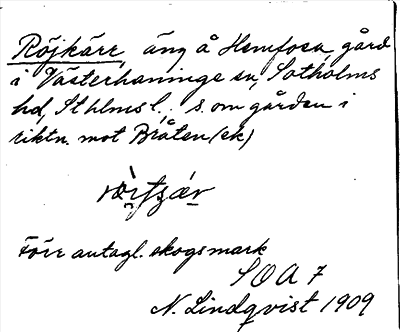 Röjkärr, äng å Hemfosa gård
i Västerhaninge sn, Sotholms
hd, Sthlms l., s. om gården i
riktn. mot Bråten (ek)
Förr antagl. skogsmark
SOA 7
N. Lindqvist 1909